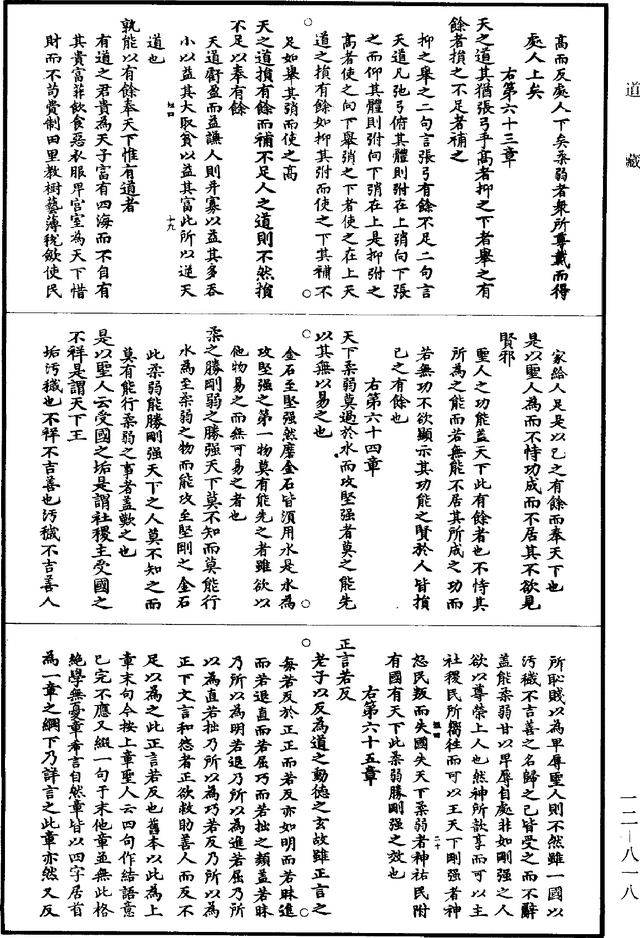 道藏
高而反處人下矣柔弱者衆所尊戴而得
處人上矣
右第六十三章
天之道其猶張弓乎高者抑之下者舉之有
餘者損之不足者補之
抑之舉之二句言張弓有餘不足二句言
天道凡弛弓俯其體則弣在上弰向下張
之而仰其體則弣向下弰在上是抑弣之
高者使之向下舉弰之下者使之在上天
道之損有餘如抑其弣而使之下其補不
足如舉其弰而使之高
天之道損有餘而補不足人之道則不然損
不足以奉有餘
天道虧盈而益謙人則弃寡以益其多吞
小以益其大取貧以益其富此所以逆天
道也
孰能以有餘奉天下惟有道者
有道之君貴為天子富有四海而不自有
其貴富菲飲食惡衣服卑宮室為天下惜
財而不苟費制田里教樹藝薄稅斂使民
家給人足是以己之有餘而奉天下也
是以聖人為而不恃功成而不居其不欲見
賢邪
聖人之功能蓋天下此有餘者也不恃其
所為之能而若無能不居其所成之功而
若無功不欲顯示其功能之賢於人皆損
己之有餘也
右第六十四章
天下柔弱莫過於水而攻堅强者莫之能先
以其無以易之也
金石至堅强然磨金石皆須用水是水為
攻堅强之第一物莫有能先之者雖欲以
他物易之而無可易之者也
柔之勝剛弱之勝强天下莫不知而莫能行
水為至柔弱之物而能攻至堅剛之金石
此柔弱能勝剛强天下之人莫不知之而
莫有能行柔弱之事者蓋歎之也
是以聖人云受國之垢是謂社稷主受國之
不祥是謂天下王
垢汚穢也不祥不吉善也汚穢不吉善人
所恥賤以為卑辱聖人則不然雖一國以
汚穢不吉善之名歸之己皆受之而不辭
蓋能柔弱甘以卑辱自處非如剛强之人
欲以尊榮上人也然神所歆享而可以主
社稷民所嚮往而可以王天下剛强者神
怨民叛而失國失天下柔弱者神祐民附
有國有天下此柔弱勝剛强之效也
右第六十五章
正言若反
老子以反為道之動德之玄故雖正言之
每若反於正正而若反亦如明而若昧進
而若退直而若屈巧而若拙之類蓋若昧
乃所以為明若退乃所以為進若屈乃所
以為直若拙乃所以為巧若反乃所以為
正下文言和怨者正欲救助善人而反不
足以為之此正言若反也舊本以此為上
章末句今按上章聖人云四句作結語意
已完不應又綴一句于末他章並無此格
絶學無憂章希言自然章皆以四字居首
為一章之綱下乃詳言之此章亦然又反
一二—八一八